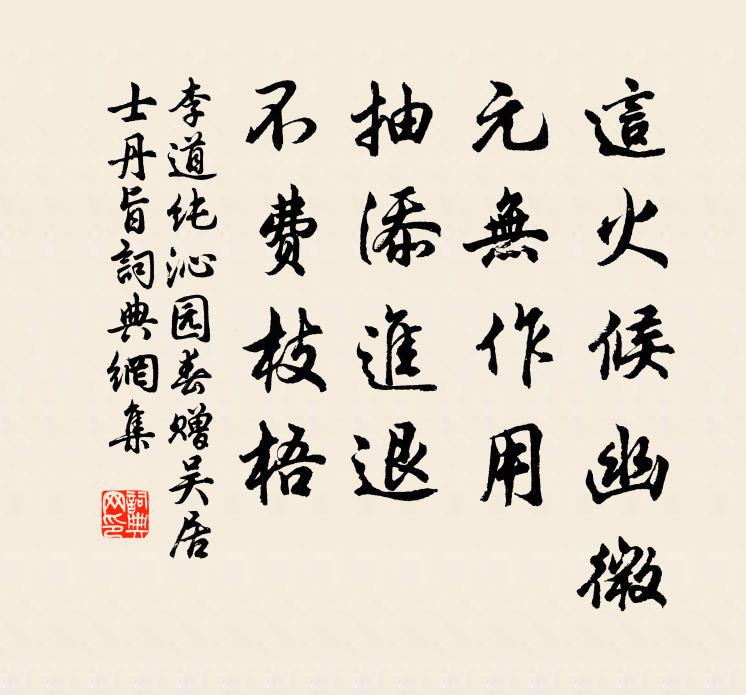 這火候幽微
元無作用
抽添進退
不費枝梧
李道純沁园春赠吴居
士丹旨詞典網集
詞典
网印